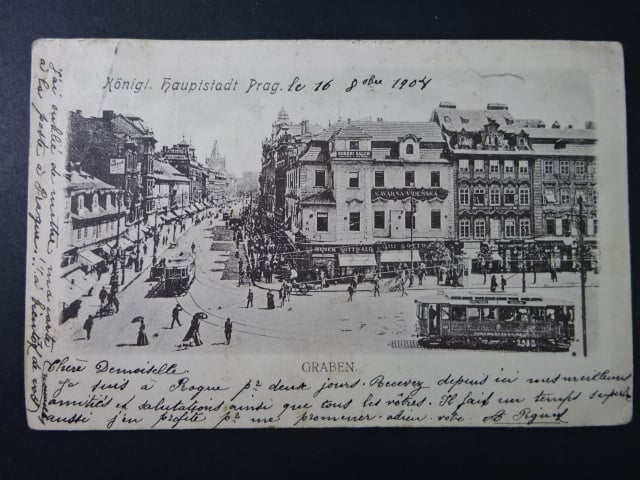 Königl. Hauptstadt Prag. le 16 8bre 1904
KAVÁRNA VÍDEŇSKÁ
GRABEN.
Chère Demoiselle.
Je suis à Prague pr deux jours. Recevez depuis ici mes meilleures
amitiés et salutations ainsi que tous les vôtres. Il fait un temps superbe
aussi j'en profite pr me promener.
J'ai oublié de mettre ma carte
à la poste à Prague